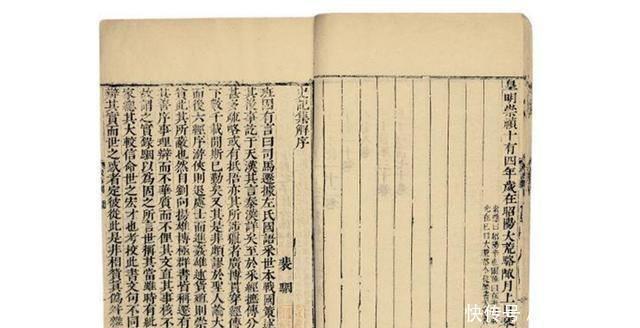 皇明崇禎十有四年歲在昭陽大荒駱
月上
史記集解序
裴駰
班固有言曰司馬遷據左氏國語采世本戰國策述
其後事訖于天漢其言秦漢詳矣至於采經摭傳分
甚多疏略或有抵捂亦其所涉獵者廣博貫穿經傳
下數千載閒斯已勤矣又其是非頗謬於聖人論大
而後六經序游俠則退處士而進姦雄述貨殖則崇
貧此其所蔽也然自劉向揚雄博極群書皆稱遷有
其善序事理辯而不華質而不俚其文直其事核不
故謂之實錄駰以為固之所言世稱其當雖時有紕
家總其大較信命世之宏才也考較此書文句不同
辯其實而世之惑者定彼從此是非相貿真偽舛雜
快传号